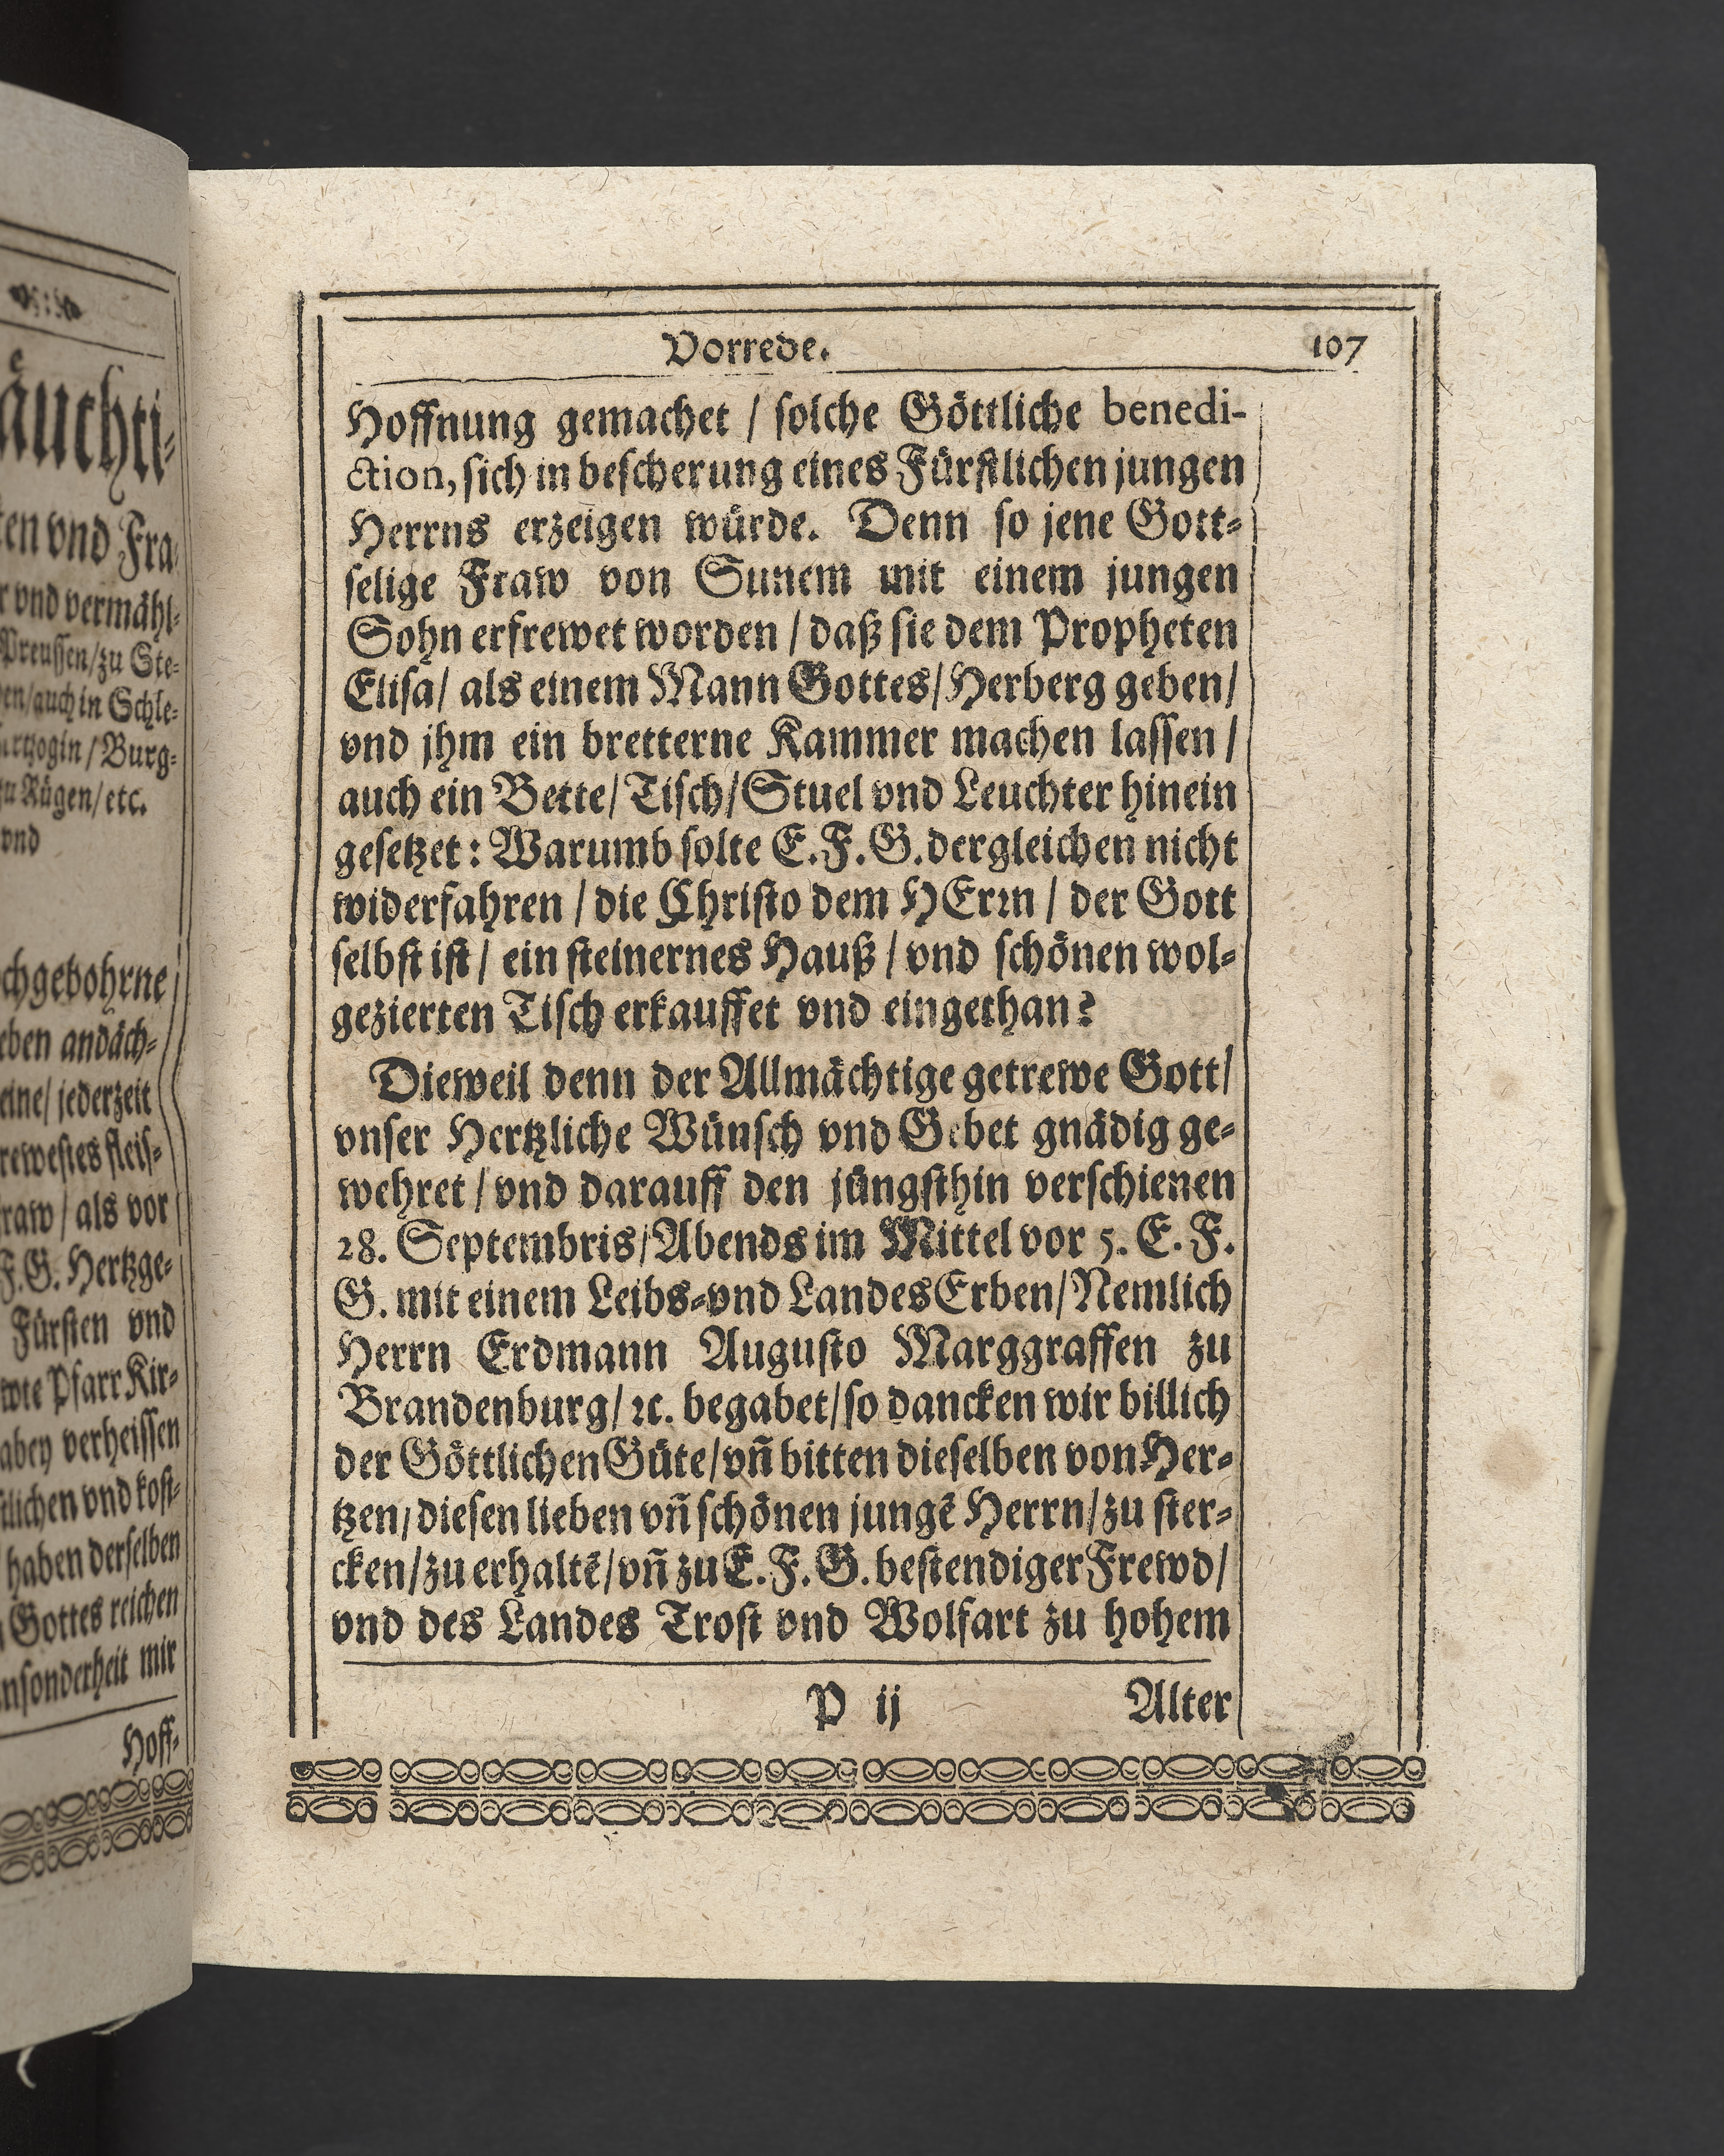 äuchti-
ten vnd Fra
r vnd vermähl-
Preussen/zu Ste-
en/auch in Schle-
Burg-
zu Rügen/etc.
vnd
chgebohrne
eben andäch-
eine/jederzeit
rewestes fleis-
raw/als vor
F.G. Hertzge-
Fürsten vnd
wte Pfarr Kir-
abey verheissen
tlichen vnd kost-
haben derselben
Gottes reichen
nsonderheit mir
Hoff-
Vorrede. 107
Hoffnung gemachet / solche Göttliche benedi-
ction, sich in bescherung eines Fürstlichen jungen
Herrns erzeigen würde. Denn so jene Gott-
selige Fraw von Sunem mit einem jungen
Sohn erfrewet worden / daß sie dem Propheten
Elisa/ als einem Mann Gottes/Herberg geben/
vnd jhm ein bretterne Kammer machen lassen /
auch ein Bette/Tisch/Stuel vnd Leuchter hinein
gesetzet: Warumb solte E.F.G.dergleichen nicht
widerfahren / die Christo dem HErrn / der Gott
selbst ist / ein steinernes Hauß / vnd schönen wol-
gezierten Tisch erkauffet vnd eingethan?
Dieweil denn der Allmächtige getrewe Gott/
vnser Hertzliche Wünsch vnd Gebet gnädig ge-
wehret / vnd darauff den jüngsthin verschienen
28. Septembris/Abends im Mittel vor 5. E. F.
G. mit einem Leibs-vnd Landes Erben/Nemlich
Herrn Erdmann Augusto Marggraffen zu
Brandenburg/ ꝛc. begabet/so dancken wir billich
der Göttlichen Güte/vn̄ bitten dieselben von Her-
tzen/diesen lieben vn̄ schönen jungē Herrn/zu ster-
cken/zu erhaltē/vn̄ zu E.F.G. bestendiger Frewd/
vnd des Landes Trost vnd Wolfart zu hohem
P ij Alter